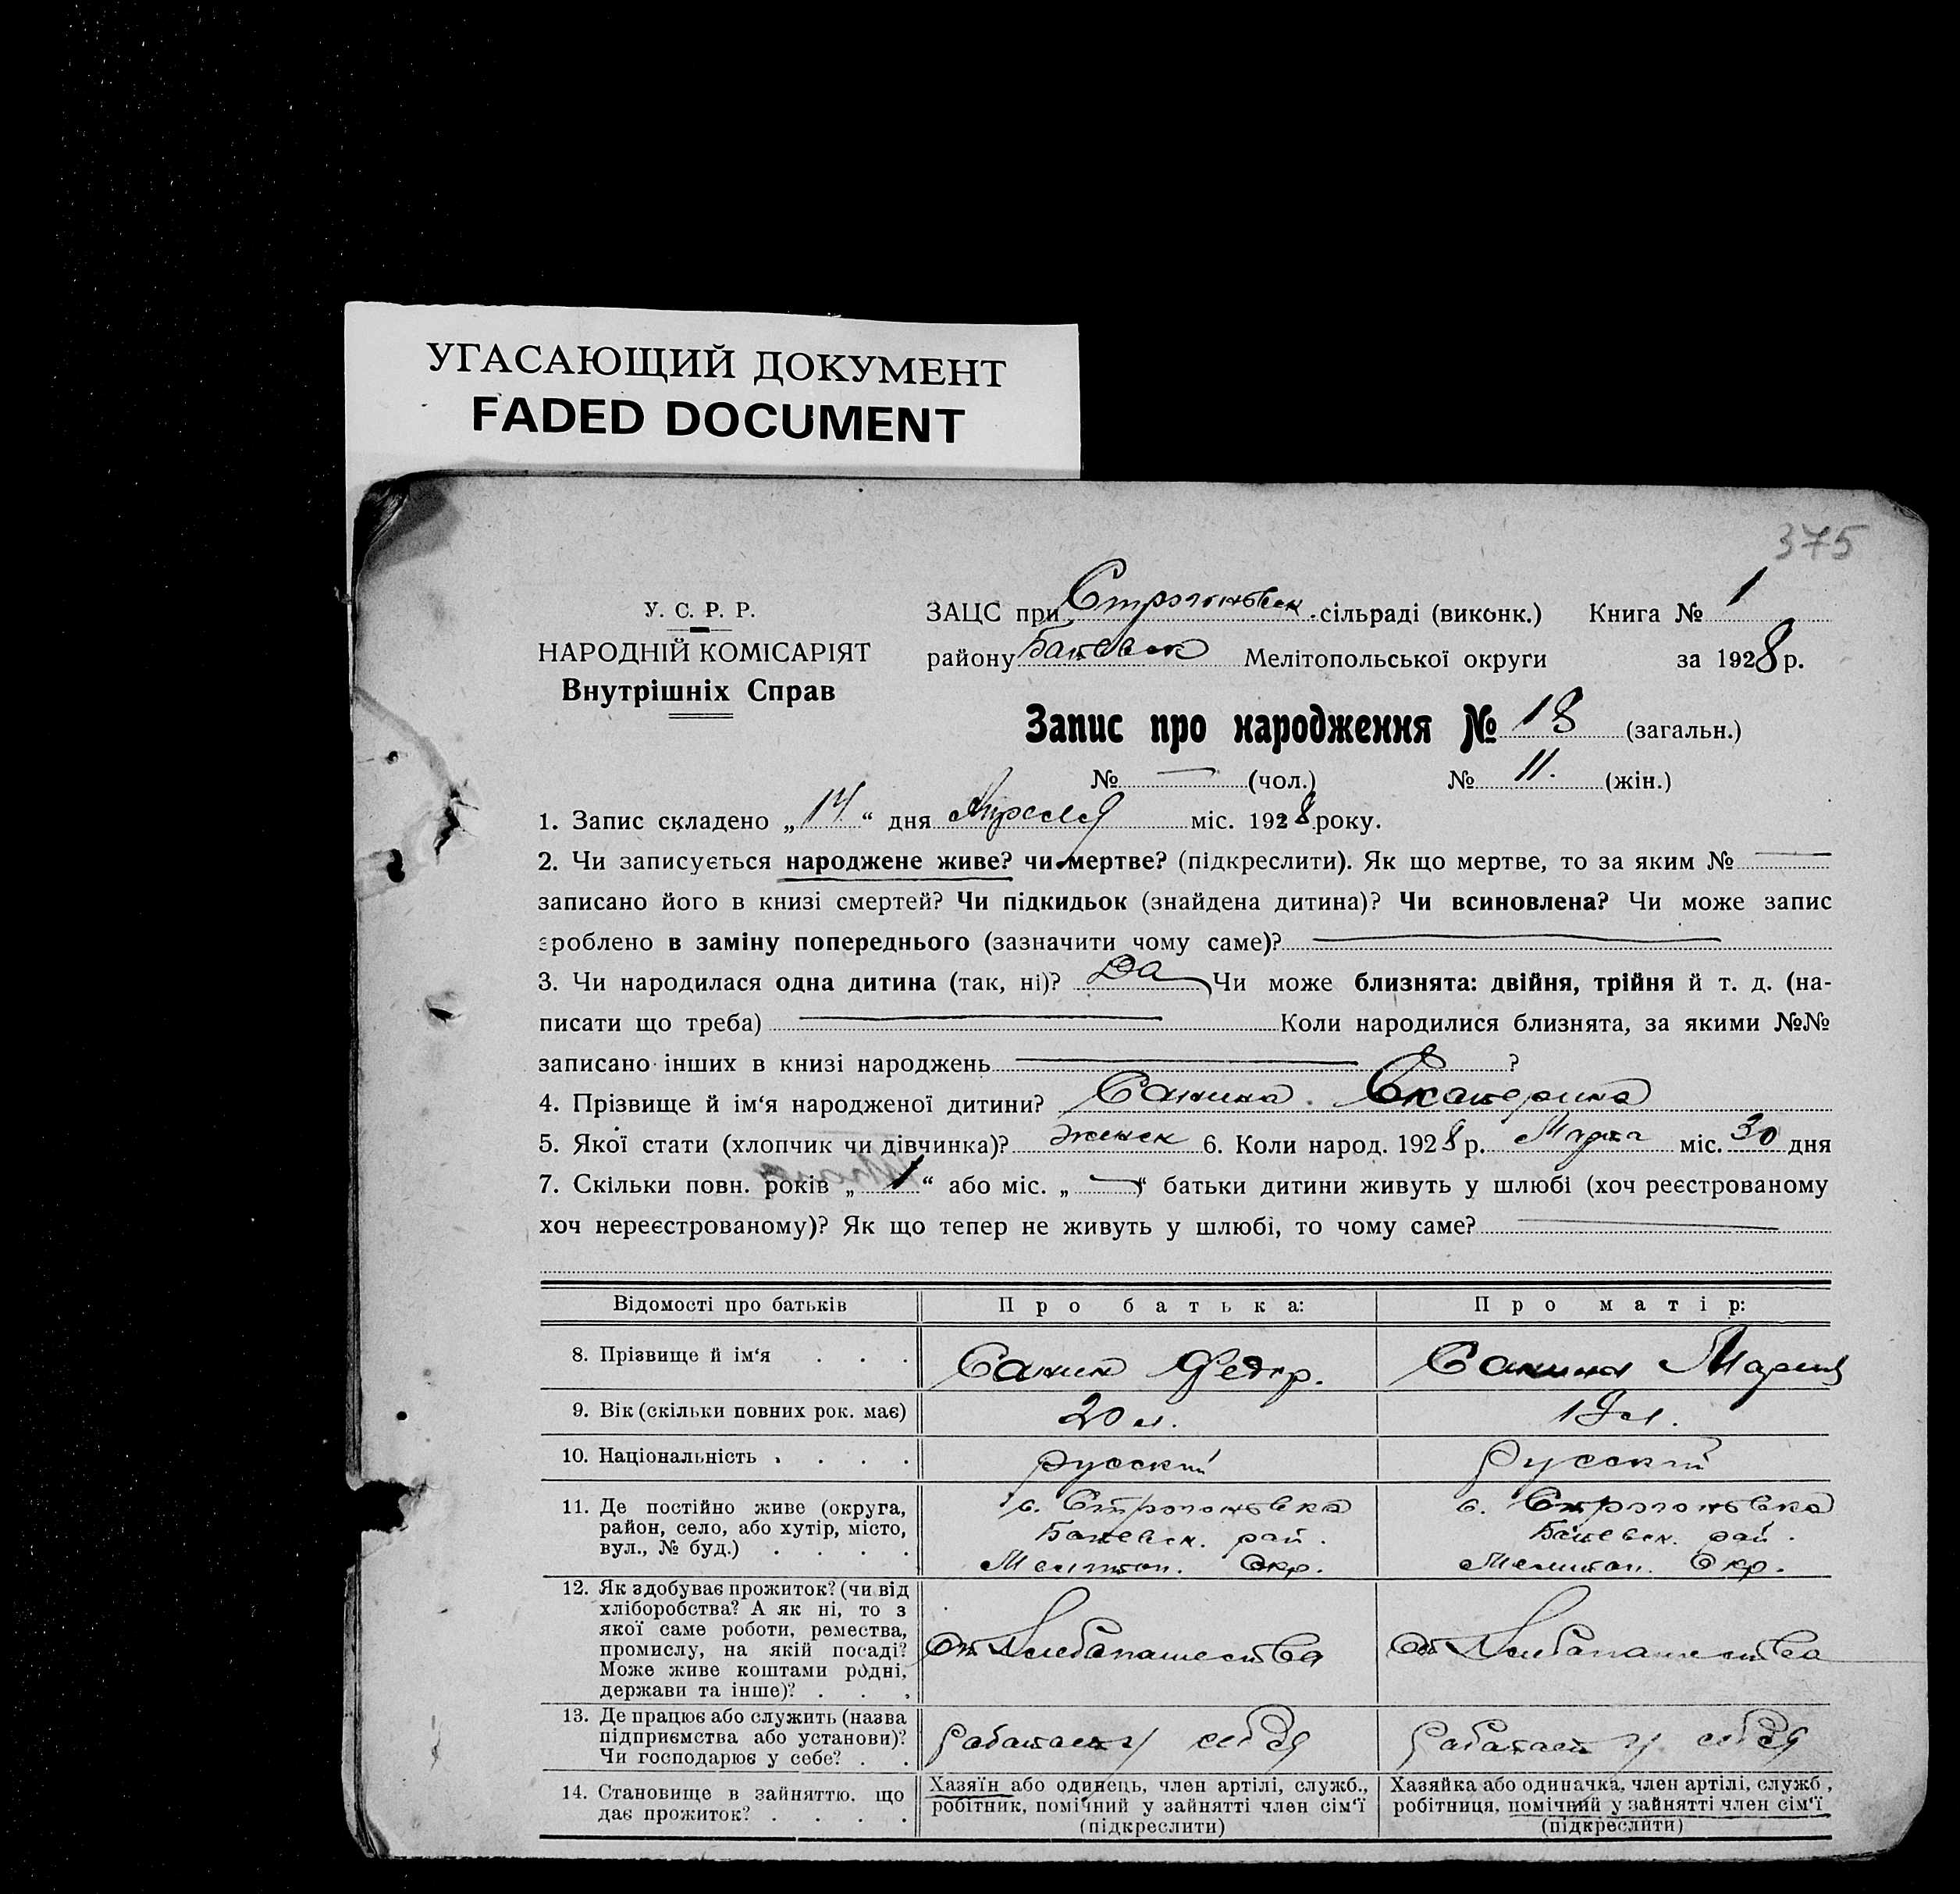 УГАСАЮЩИЙ ДОКУМЕНТ
FADED DOCUMENT
375
У. С. Р. Р.
НАРОДНІЙ КОМІСАРІЯТ
Внутрішніх Справ
ЗАЦС при Строгоновск. сільраді (виконк.) Книга № 1
району Мелітопольської округи за 1928 р.
Запис про народження № 18 (загальн.)
№ — (чол.) № 11. (жін.)
1. Запис складено „14“ дня Апреля міс. 1928 року.
2. Чи записується народжене живе? чи мертве? (підкреслити). Як що мертве, то за яким № —
записано його в книзі смертей? Чи підкидьок (знайдена дитина)? Чи всиновлена? Чи може запис
зроблено в заміну попереднього (зазначити чому саме)? —
3. Чи народилася одна дитина (так, ні)? Да Чи може близнята: двійня, трійня й т. д. (на-
писати що треба) — Коли народилися близнята, за якими №№
записано інших в книзі народжень — ?
4. Прізвище й ім‘я народженої дитини? Санина. Екатерина
5. Якої стати (хлопчик чи дівчинка)? женск 6. Коли народ. 1928 р. Марта міс. 30 дня
7. Скільки повн. років „1“ або міс. „—“ батьки дитини живуть у шлюбі (хоч реєстрованому
хоч нереєстрованому)? Як що тепер не живуть у шлюбі, то чому саме? —
Відомості про батьків Про батька: Про матір:
8. Прізвище й ім‘я . . . Санин Федор. Санина Мария
9. Вік (скільки повних рок. має) 20 л. 19 л.
10. Національність . . . . русский Русский
11. Де постійно живе (округа, с. Строгоновка с. Строгоновка
район, село, або хутір, місто, рай. рай.
вул., № буд.) . . . . Мелитоп. Окр. Мелитоп. Окр.
12. Як здобуває прожиток? (чи від
хліборобства? А як ні, то з
якої саме роботи, ремества,
промислу, на якій посаді? От Хлебапашества От Хлебапашества
Може живе коштами рідні,
держави та інше)? . . .
13. Де працює або служить (назва
підприємства або установи)? работает у себя Работает у себя
Чи господарює у себе? . .
14. Становище в зайняттю, що Хазяїн або одинець, член артілі, служб., Хазяйка або одиначка, член артілі, служб,
дає прожиток? . . . . робітник, помічний у зайнятті член сім‘ї робітниця, помічний у зайнятті член сім‘ї
(підкреслити) (підкреслити)